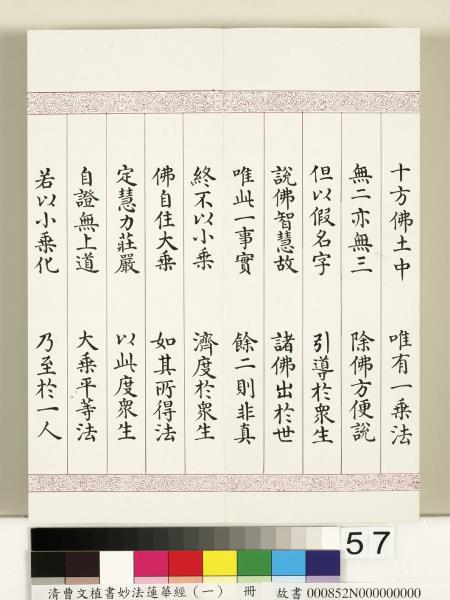 十方佛土中　唯有一乘法
無二亦無三　除佛方便說
但以假名字　引導於衆生
說佛智慧故　諸佛出於世
唯此一事實　餘二則非真
終不以小乘　濟度於衆生
佛自住大乘　如其所得法
定慧力莊嚴　以此度衆生
自證無上道　大乘平等法
若以小乘化　乃至於一人
57
清曹文植書妙法蓮華經（一）　冊　故書 000852N000000000